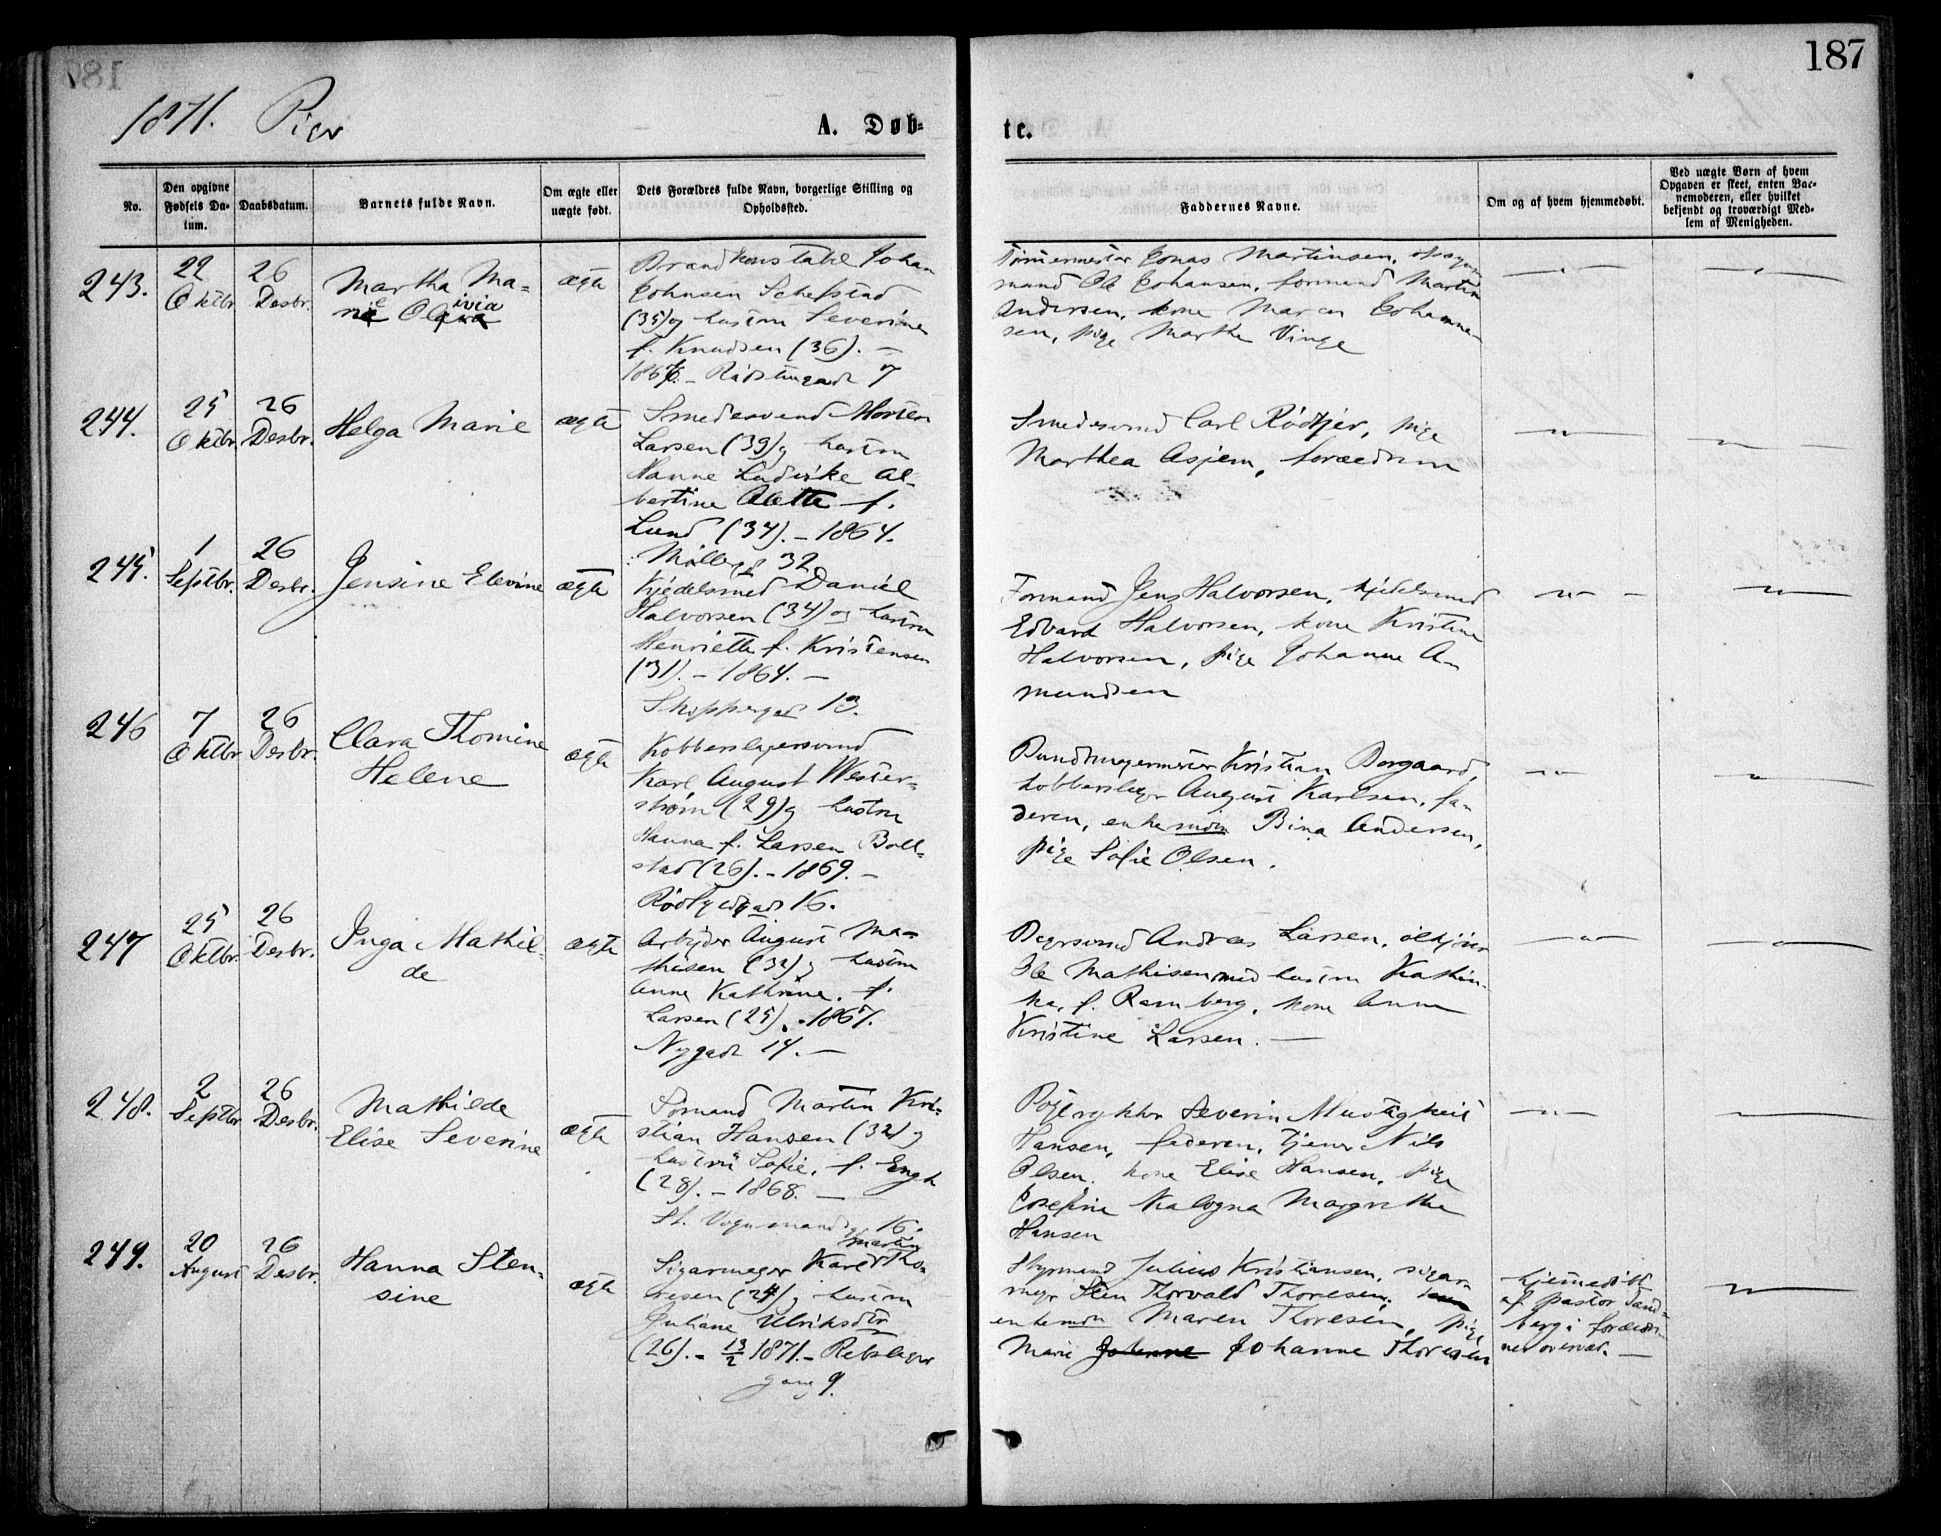 187
1871. Piger
A. Døb-
te.
No.
Den opgivne
Fødsels Da-
tum.
Daabsdatum.
Barnets fulde Navn.
Om ægte eller
uægte født.
Dets Forældres fulde Navn, borgerlige Stilling og
Opholdssted.
Faddernes Navne.
Om og af hvem hjemmedøbt.
Ved uægte Børn af hvem
Opgaven er skeet, enten Vac-
nemoderen, eller hvilket
bekjendt og troværdigt Med-
lem af Menigheden.
243.
22
Oktbr
26
Desbr.
Martha Ma-
rie Olivia
ægte
Brandkonstabel Johan
Johnsen Schefstad
(35) og hustru Severine
f. Knudsen (36). –
Jonas Martinsen,
mand Ole Johansen, formand Martin
Andersen, kone Maren Johanne-
sen, pige Marthe Vinge
244.
25
Oktbr.
26
Desbr.
Helga Marie
ægte
Smedesvend Morten
Larsen (39) og hustru
Hanne Ludvike Al-
bertine Alette f.
Lund (34). – 1864.
Møllerg 32
Smedesvend Carl Rødtjer, pige
Marthea Asjem, forældrene
245.
1
Septbr.
26
Desbr.
Jensine Elevine
ægte
Kjedelsmed Daniel
Halvorsen (34) og hustru
Henriette f. Kristensen
(31). – 1864. –
Skippergad 13.
Formand Jens Halvorsen, kjedelsmed
Edvard Halvorsen, kone Kristine
Halvorsen, pige Johanne A-
mundsen
246
7
Oktbr
26
Desbr.
Clara Thomine
Helene
ægte
Kobberslagersvend
Karl August Wester-
strøm (29) og hustru
Hanna f. Larsen Boll-
stad (26). – 1869. –
16.
Bundtmagermester Kristian Borgaard,
kobberslager August Karlsen, fa-
deren, enkemdn Bina Andersen,
pige Sofie Olsen.
247
25
Oktbr.
26
Desbr.
Inga Mathil-
de
ægte
Arbejder August Ma-
thisen (32) og hustru
Anne Kathrine, f.
Larsen (25). – 1867.
Nygade 14. –
Andreas Larsen, ølkjører
Ole Mathisen med hustru Kathin-
ka, f. Ramberg, kone Anne
Kristine Larsen. –
248.
2
Septbr
26
Desbr.
Mathilde
Elise Severine
ægte
Formand Martin Kri-
stian Hansen (32) og
hustru Sofie, f. Engh
(28). – 1868. –
St. Vognmandsg 16.
Severin
Hansen, faderen, tjener Nils
Olsen, kone Elise Hansen, pige
Josefine Margrethe
Hansen
249.
20
August
26
Desbr.
Hanna Sten-
sine
ægte
Martin
Sigarmager Karl Tho-
resen (24) og hustru
Juliane Ulriksdtr
(26). – 13/2 1871. – Rebslager
gang 9.
Styrmand Julius Kristiansen, sigar-
mager Sten Thorvald Thoresen,
enkemdn Maren Thoresen, pige
Marie Johanne Thoresen
hjemmedøbt
af pastor Sand-
berg i forældre-
nes overvær. –